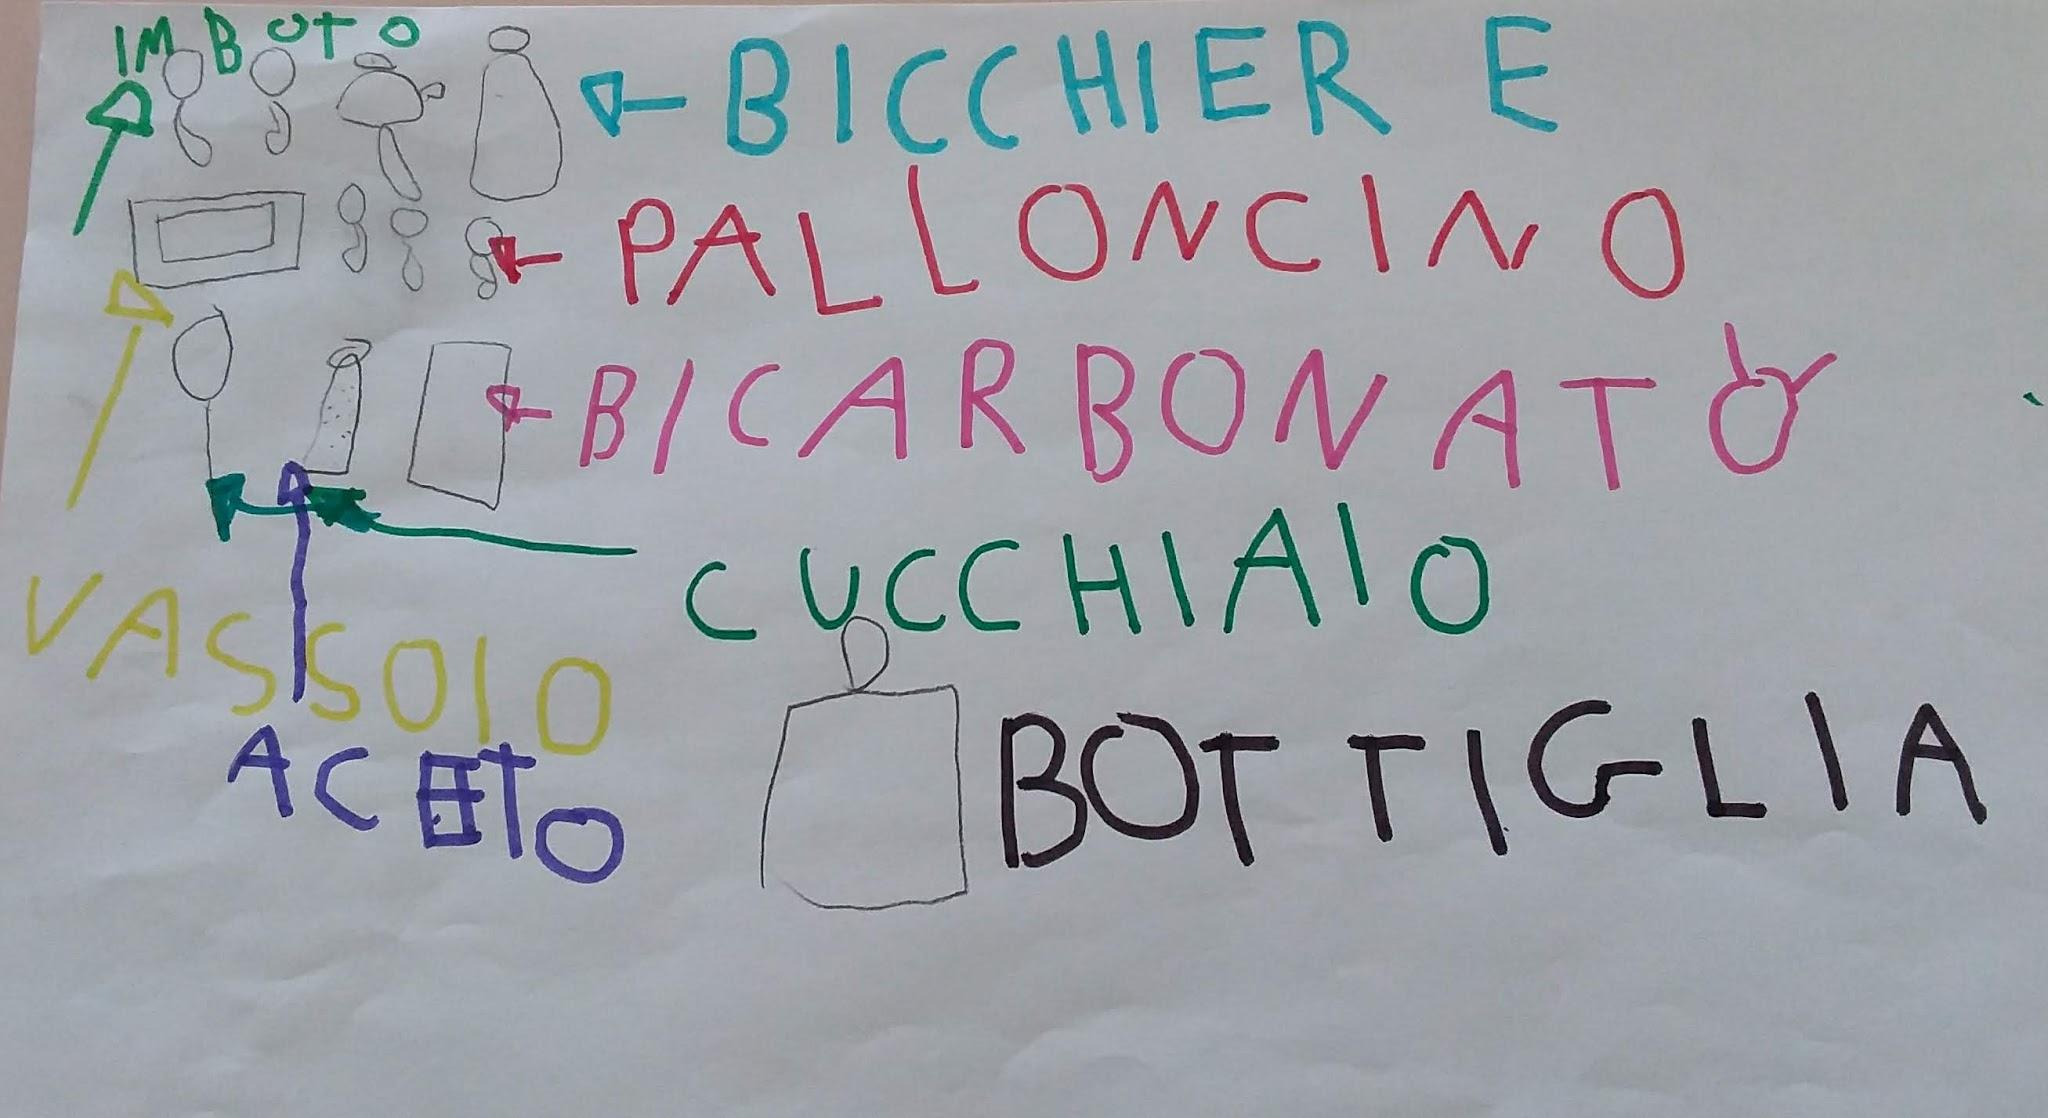 IMBOTO
BICCHIERE
PALLONCINO
BICARBONATO
CUCCHIAIO
VASSOIO
ACETO
BOTTIGLIA